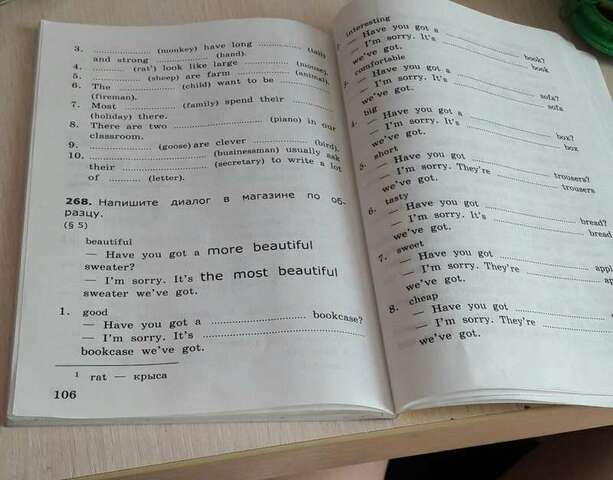 3. .................. (monkey) have long .............. (tail)
and strong .............. (hand).
4. .......... (rat¹) look like large .............. (mouse).
5. .............. (sheep) are farm .............. (animal).
6. The .............. (child) want to be ..............
(fireman).
7. Most .............. (family) spend their ..............
(holiday) there.
8. There are two .................. (piano) in our
classroom.
9. .................. (goose) are clever .............. (bird).
10. .................. (businessman) usually ask
their .............. (secretary) to write a lot
of .......... (letter).
268. Напишите диалог в магазине по об-
разцу.
(§ 5)
beautiful
— Have you got a more beautiful
sweater?
— I'm sorry. It's the most beautiful
sweater we've got.
1. good
— Have you got a .............................. bookcase?
— I'm sorry. It's ..............................
bookcase we've got.
¹ rat — крыса
106
interesting
— Have you got a .............................. book?
— I'm sorry. It's .............................. book
we've got.
comfortable
— Have you got a .............................. sofa?
— I'm sorry. It's .............................. sofa
we've got.
4. big
— Have you got a .............................. box?
— I'm sorry. It's .............................. box
we've got.
5. short
— Have you got .............................. trousers?
— I'm sorry. They're .............................. trousers
we've got.
6. tasty
— Have you got .............................. bread?
— I'm sorry. It's .............................. bread
we've got.
7. sweet
— Have you got ..............................
— I'm sorry. They're ..............................
we've got.
8. cheap
— Have you got ..............................
— I'm sorry. They're ..............................
we've got.